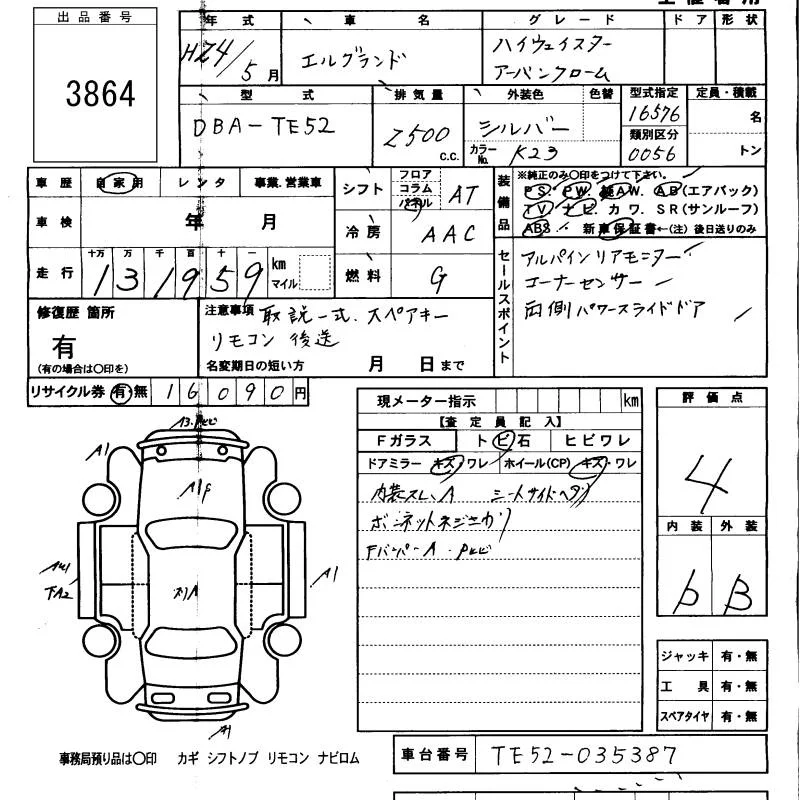 出品番号
3864
年式
H24/5月
車名
エルグランド
グレード
ハイウェイスター
アーバンクローム
ドア 形状
型式
DBA-TE52
排気量
2500 c.c.
外装色 色替
シルバー
カラーNo. K23
型式指定
16576
類別区分
0056
定員・積載
名
トン
車歴 自家用 レンタ 事業.営業車
車検 年 月
走行
十万 万 千 百 十 一
131959 km マイル
シフト フロア コラム パネル AT
冷房 AAC
燃料 G
装備品
※純正のみ○印をつけて下さい。
PS. PW. 純AW. AB(エアバック)
TV. ナビ. カワ. SR(サンルーフ)
ABS・ 新車保証書←(注)後日送りのみ
セールスポイント
アルパインリアモニター
コーナーセンサー
両側パワースライドドア
修復歴 箇所
有
(有の場合は○印を)
注意事項 取説一式.スペアキー
リモコン 後送
名変期日の短い方 月 日まで
リサイクル券 有・無 16090円
現メーター指示 km
【査定員記入】
Fガラス トビ石 ヒビワレ
ドアミラー キズ・ワレ ホイール(CP) キズ・ワレ
内装スレ、A
ボンネットネジ
FバンパーA
評価点
4
内装 外装
b B
A1
A1
A1
ジャッキ 有・無
工具 有・無
スペアタイヤ 有・無
事務局預り品は○印 カギ シフトノブ リモコン ナビロム
車台番号 TE52-035387